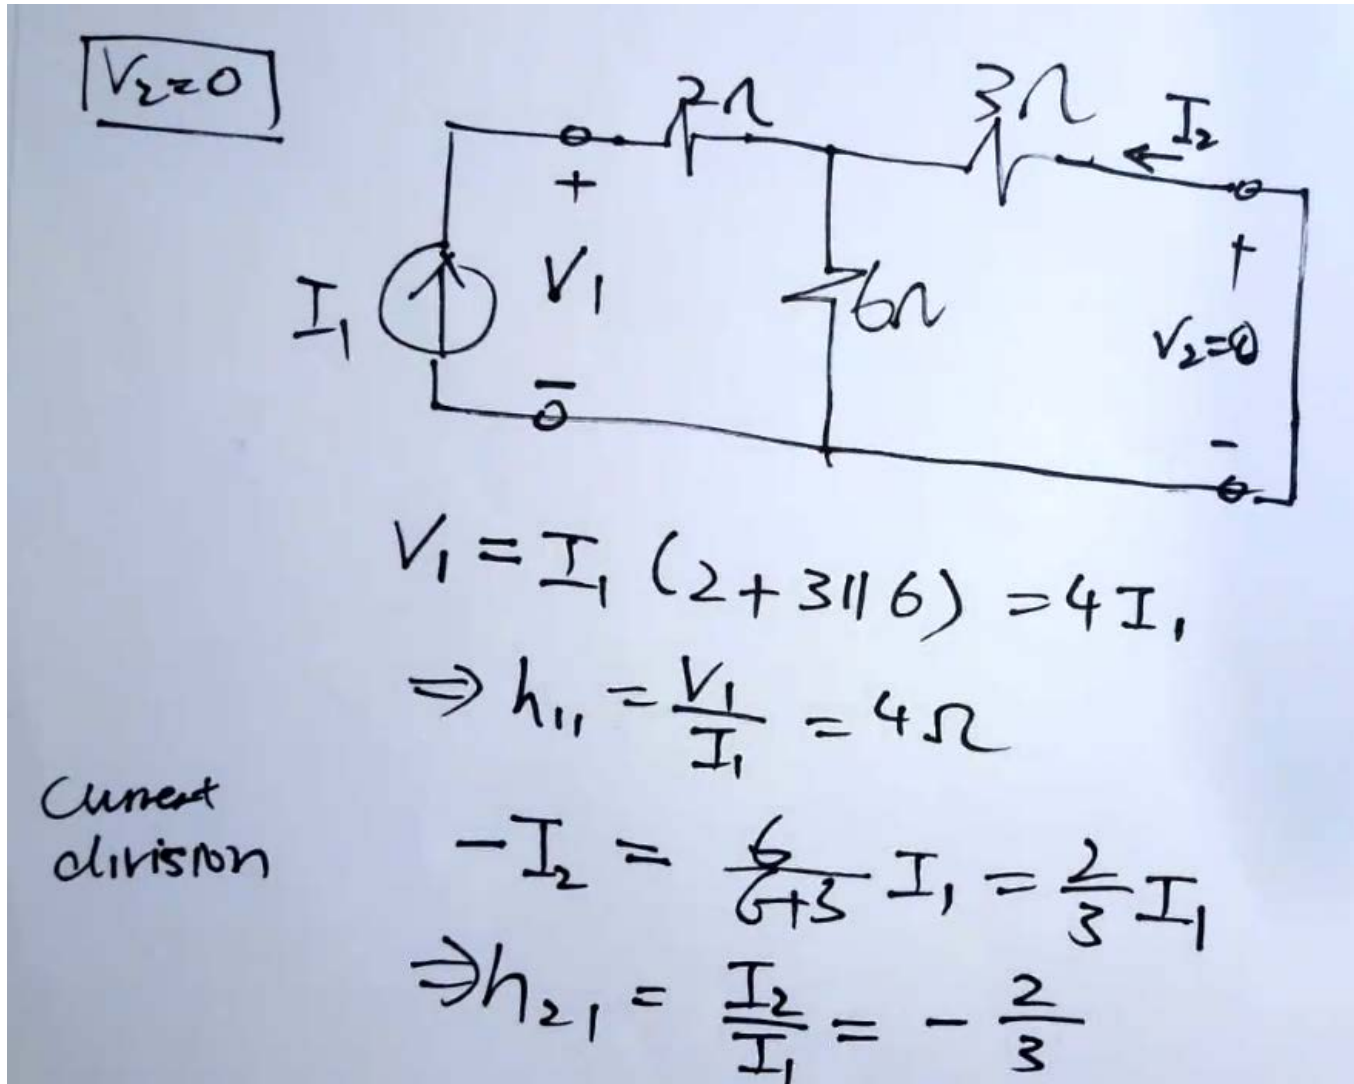 V₂=0
2Ω
3Ω
I₂
+
V₁
−
I₁
6Ω
+
V₂=0
−
V₁ = I₁ (2+3||6) = 4I₁
⇒ h₁₁ = V₁/I₁ = 4Ω
Current
division
−I₂ = 6/(6+3) I₁ = 2/3 I₁
⇒ h₂₁ = I₂/I₁ = −2/3